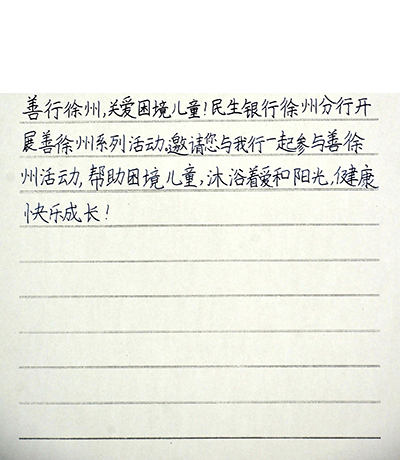 善行徐州,关爱困境儿童!民生银行徐州分行开
展善徐州系列活动,邀请您与我行一起参与善徐
州活动,帮助困境儿童,沐浴着爱和阳光,健康
快乐成长!